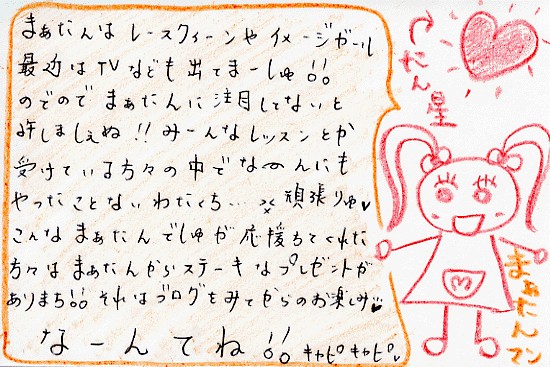 まぁたんは レースクィーンや イメージガール
最近は TVなども出てまーしゅ!!
のでので まぁたんに 注目してないと
許しましぇぬ!! みーんな レッスンとか
受けている方々の中で なーんにも
やったことないわたくち… 頑張りゅ♥
こんな まぁたんでしゅが 応援ちてくれた
方々は まぁたんからステーキなプレゼントが
ありまち!! それはブログをみてからのお楽しみ♥
なーんてね!! キャピキャピ♥
たん星
まぁたんマン